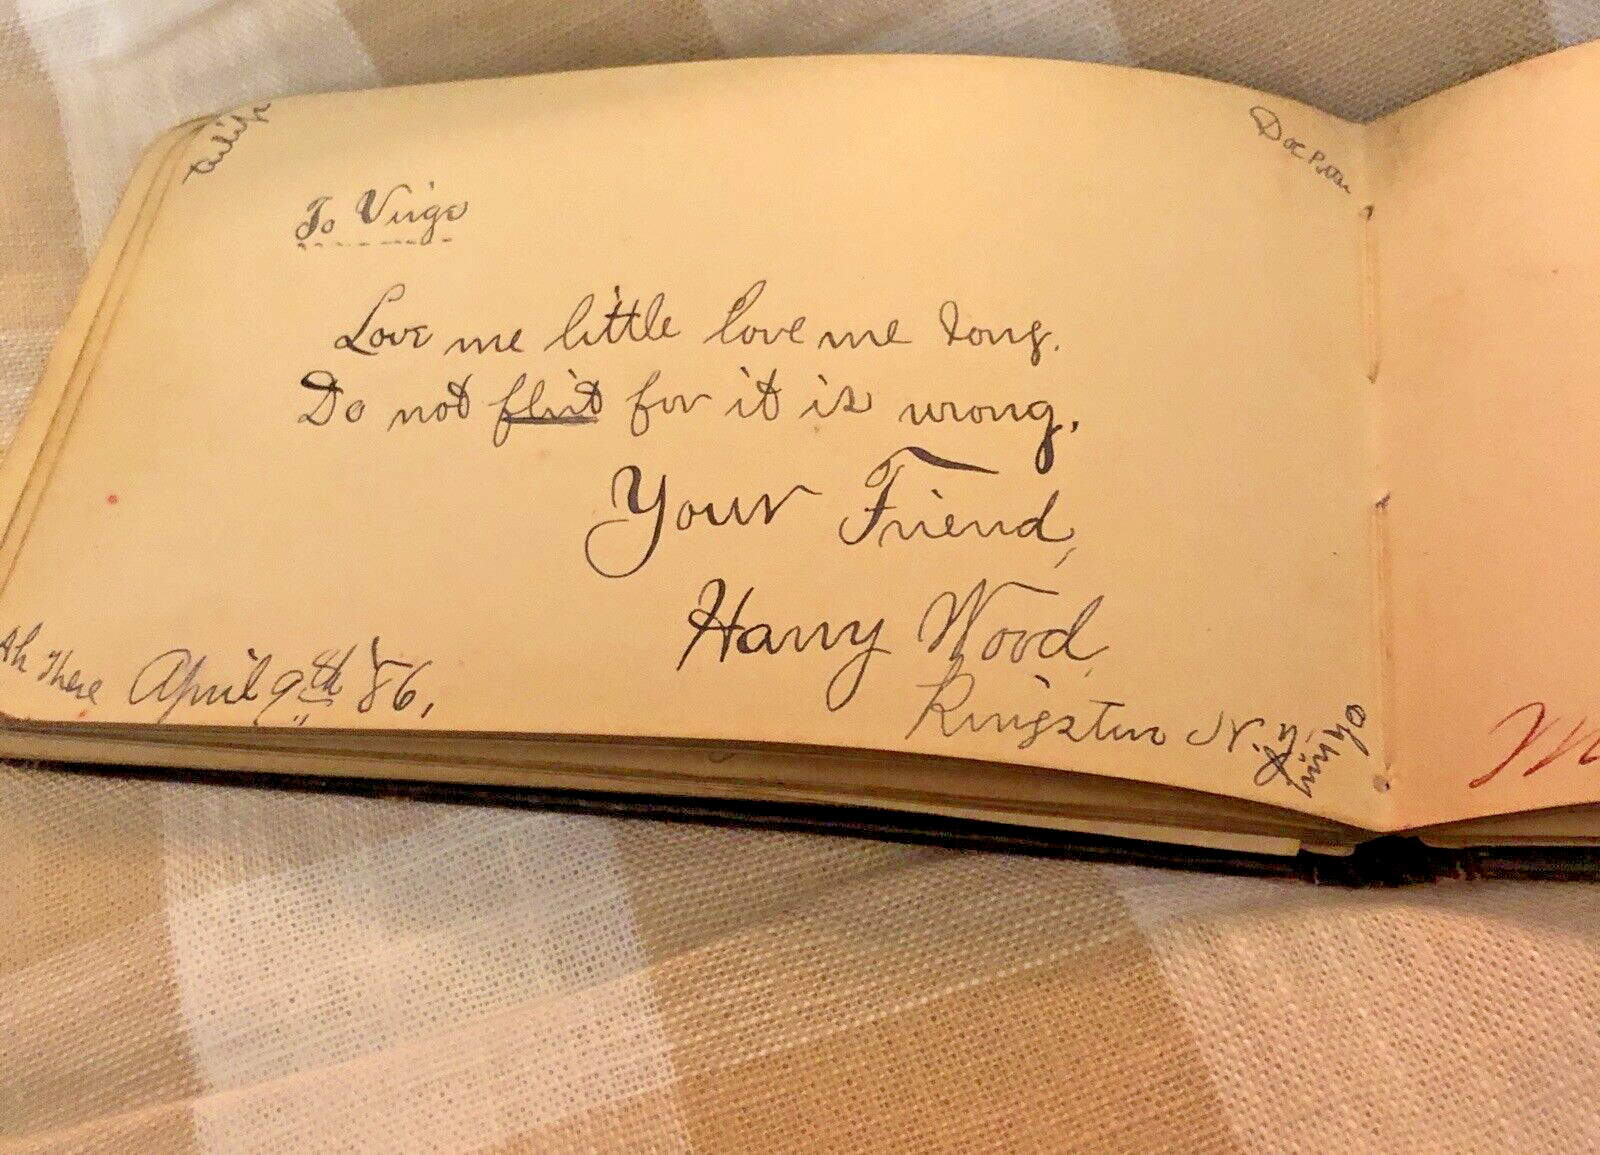 To Virge
Love me little love me long.
Do not flirt for it is wrong.
Your Friend,
Harry Wood,
Kingston N.Y.
Ah there
April 9th '86,
Doc
M